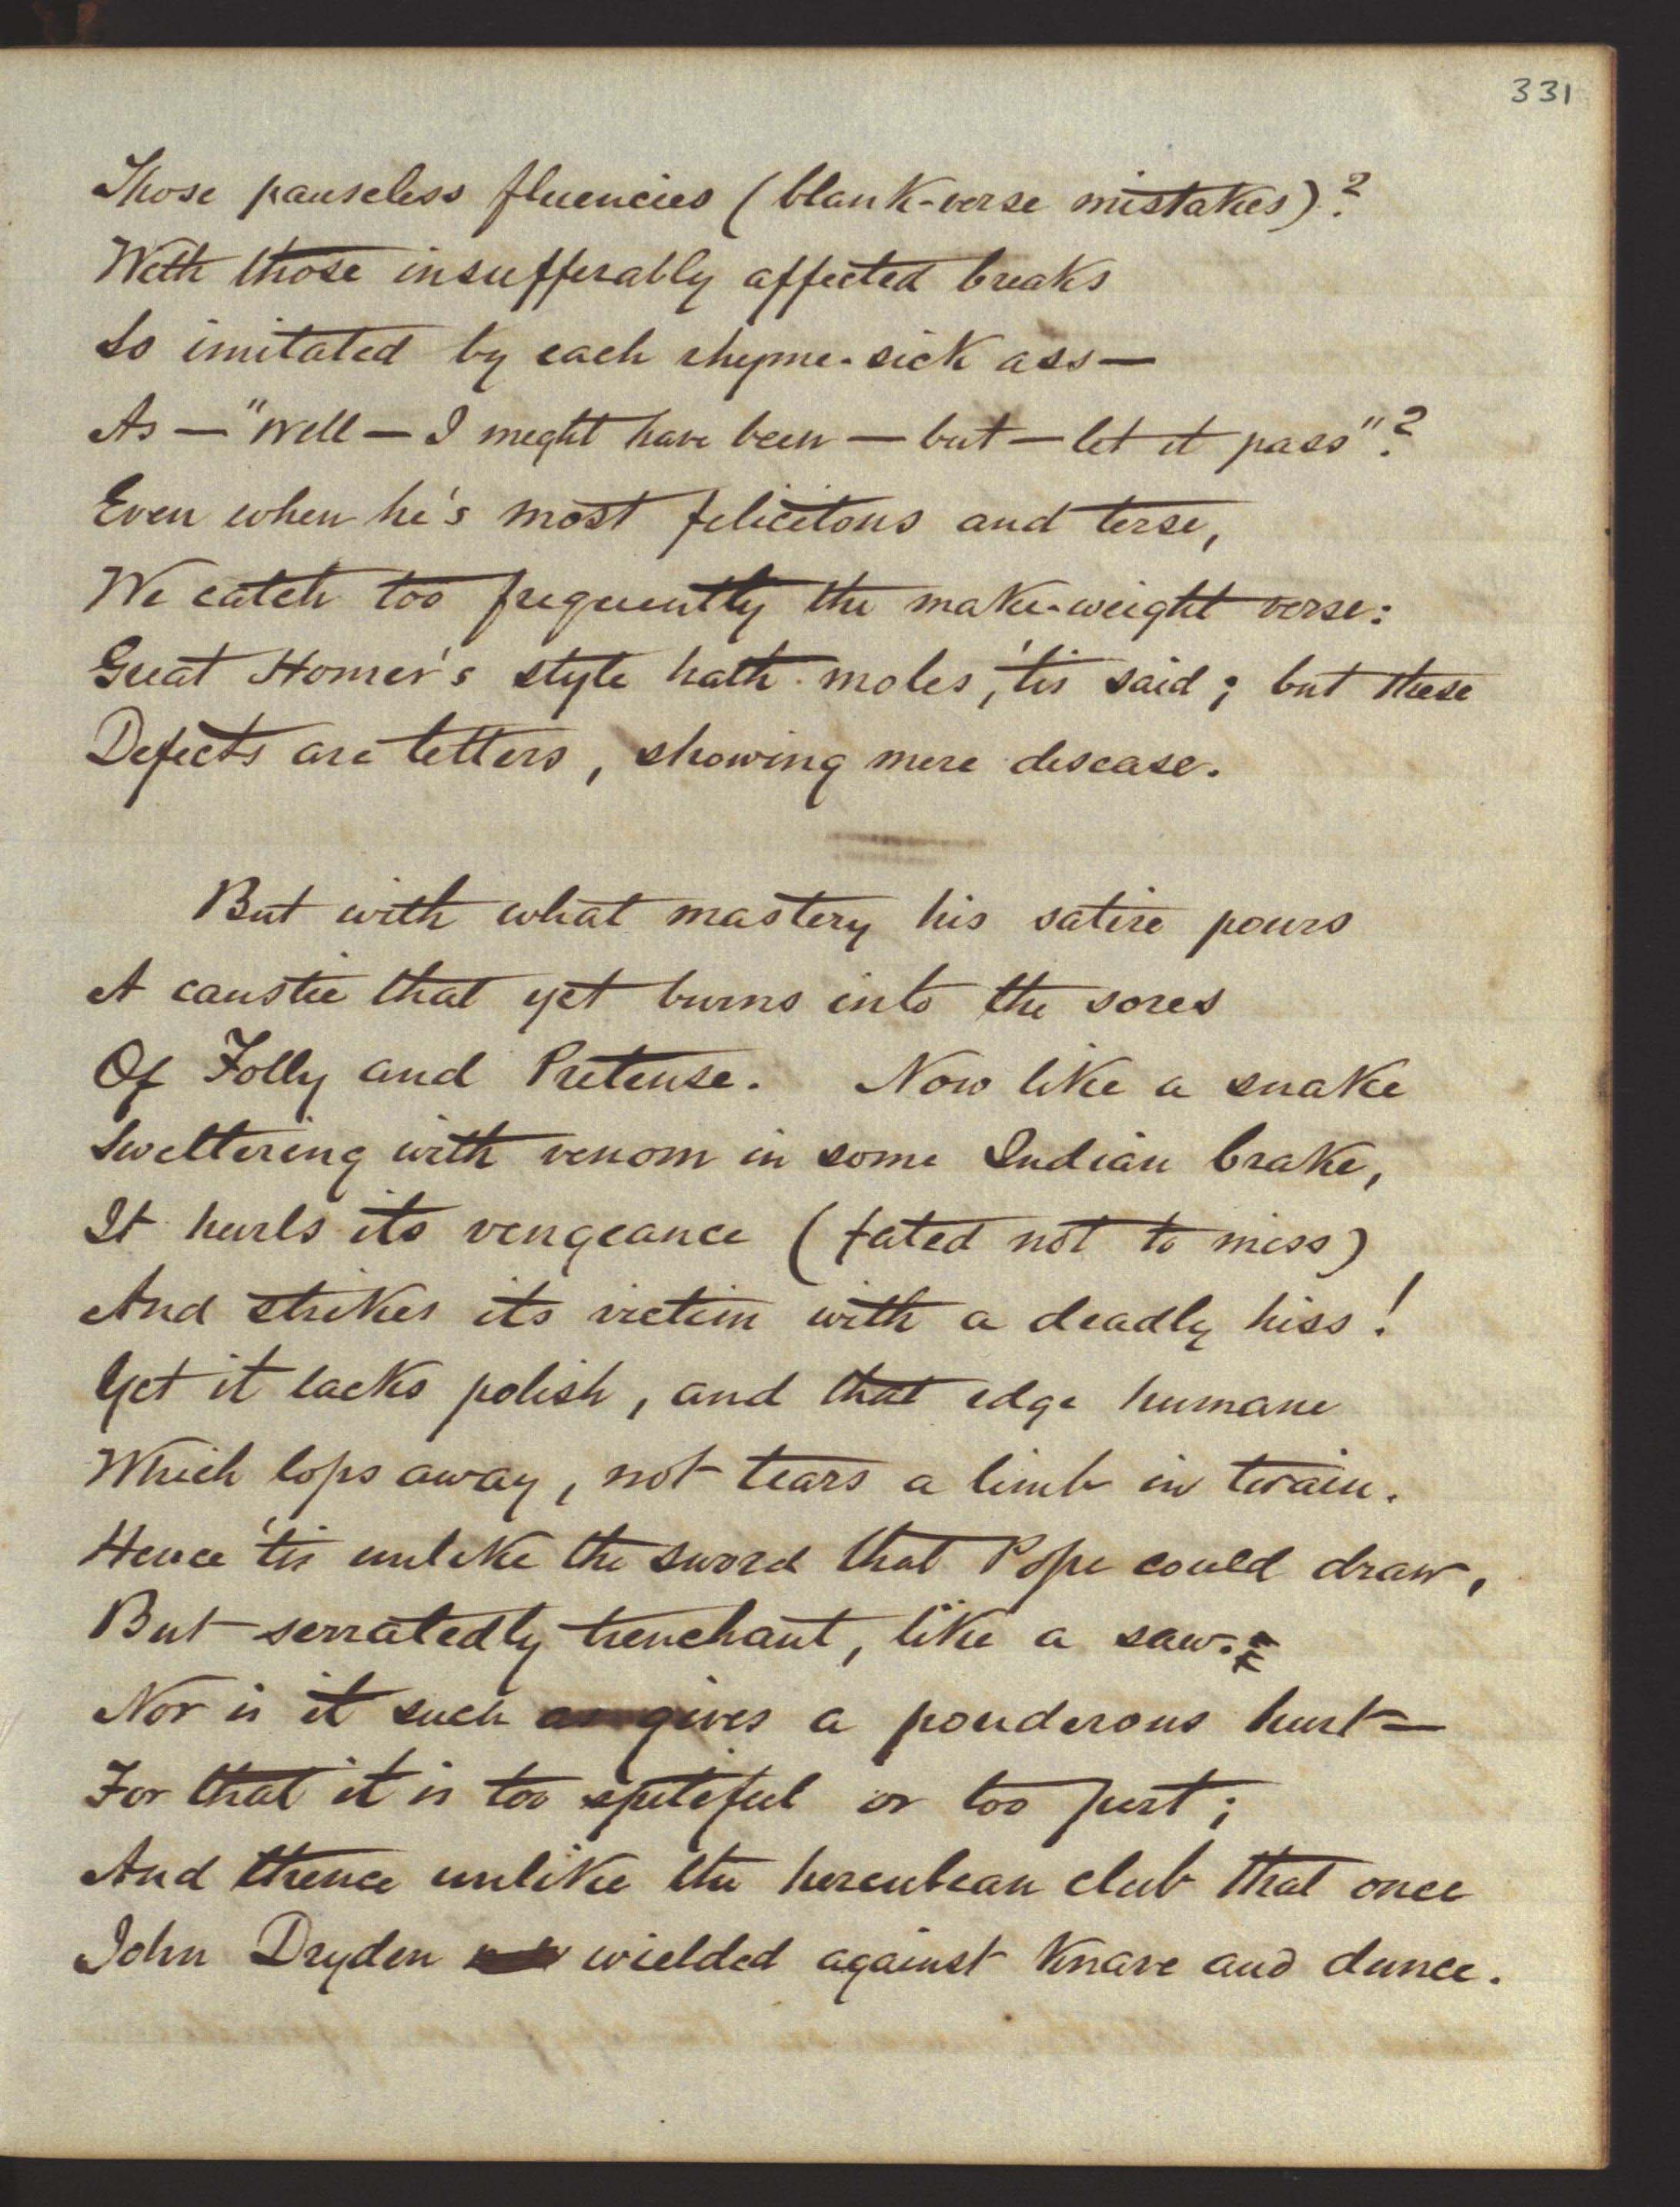 331
Those pauseless fluencies (blank-verse mistakes)?
With those insufferably affected breaks
So imitated by each rhyme-sick ass—
As — "Well — I might have been — but — let it pass"?
Even when he's most felicitous and terse,
We catch too frequently the make-weight verse:
Great Homer's style hath moles, 'tis said; but these
Defects are tetters, showing mere disease.
But with what mastery his satire pours
A caustic that yet burns into the sores
Of Folly and Pretense. Now like a snake
Sweltering with venom in some Indian brake,
It hurls its vengeance (fated not to miss)
And strikes its victim with a deadly hiss!
Yet it lacks polish, and that edge humane
Which lops away, not tears a limb in twain.
Hence 'tis unlike the sword that Pope could draw,
But serratedly trenchant, like a saw.
Nor is it such as gives a ponderous hurt—
For that it is too spiteful or too pert;
And thence unlike the herculean club that once
John Dryden wielded against knave and dunce.